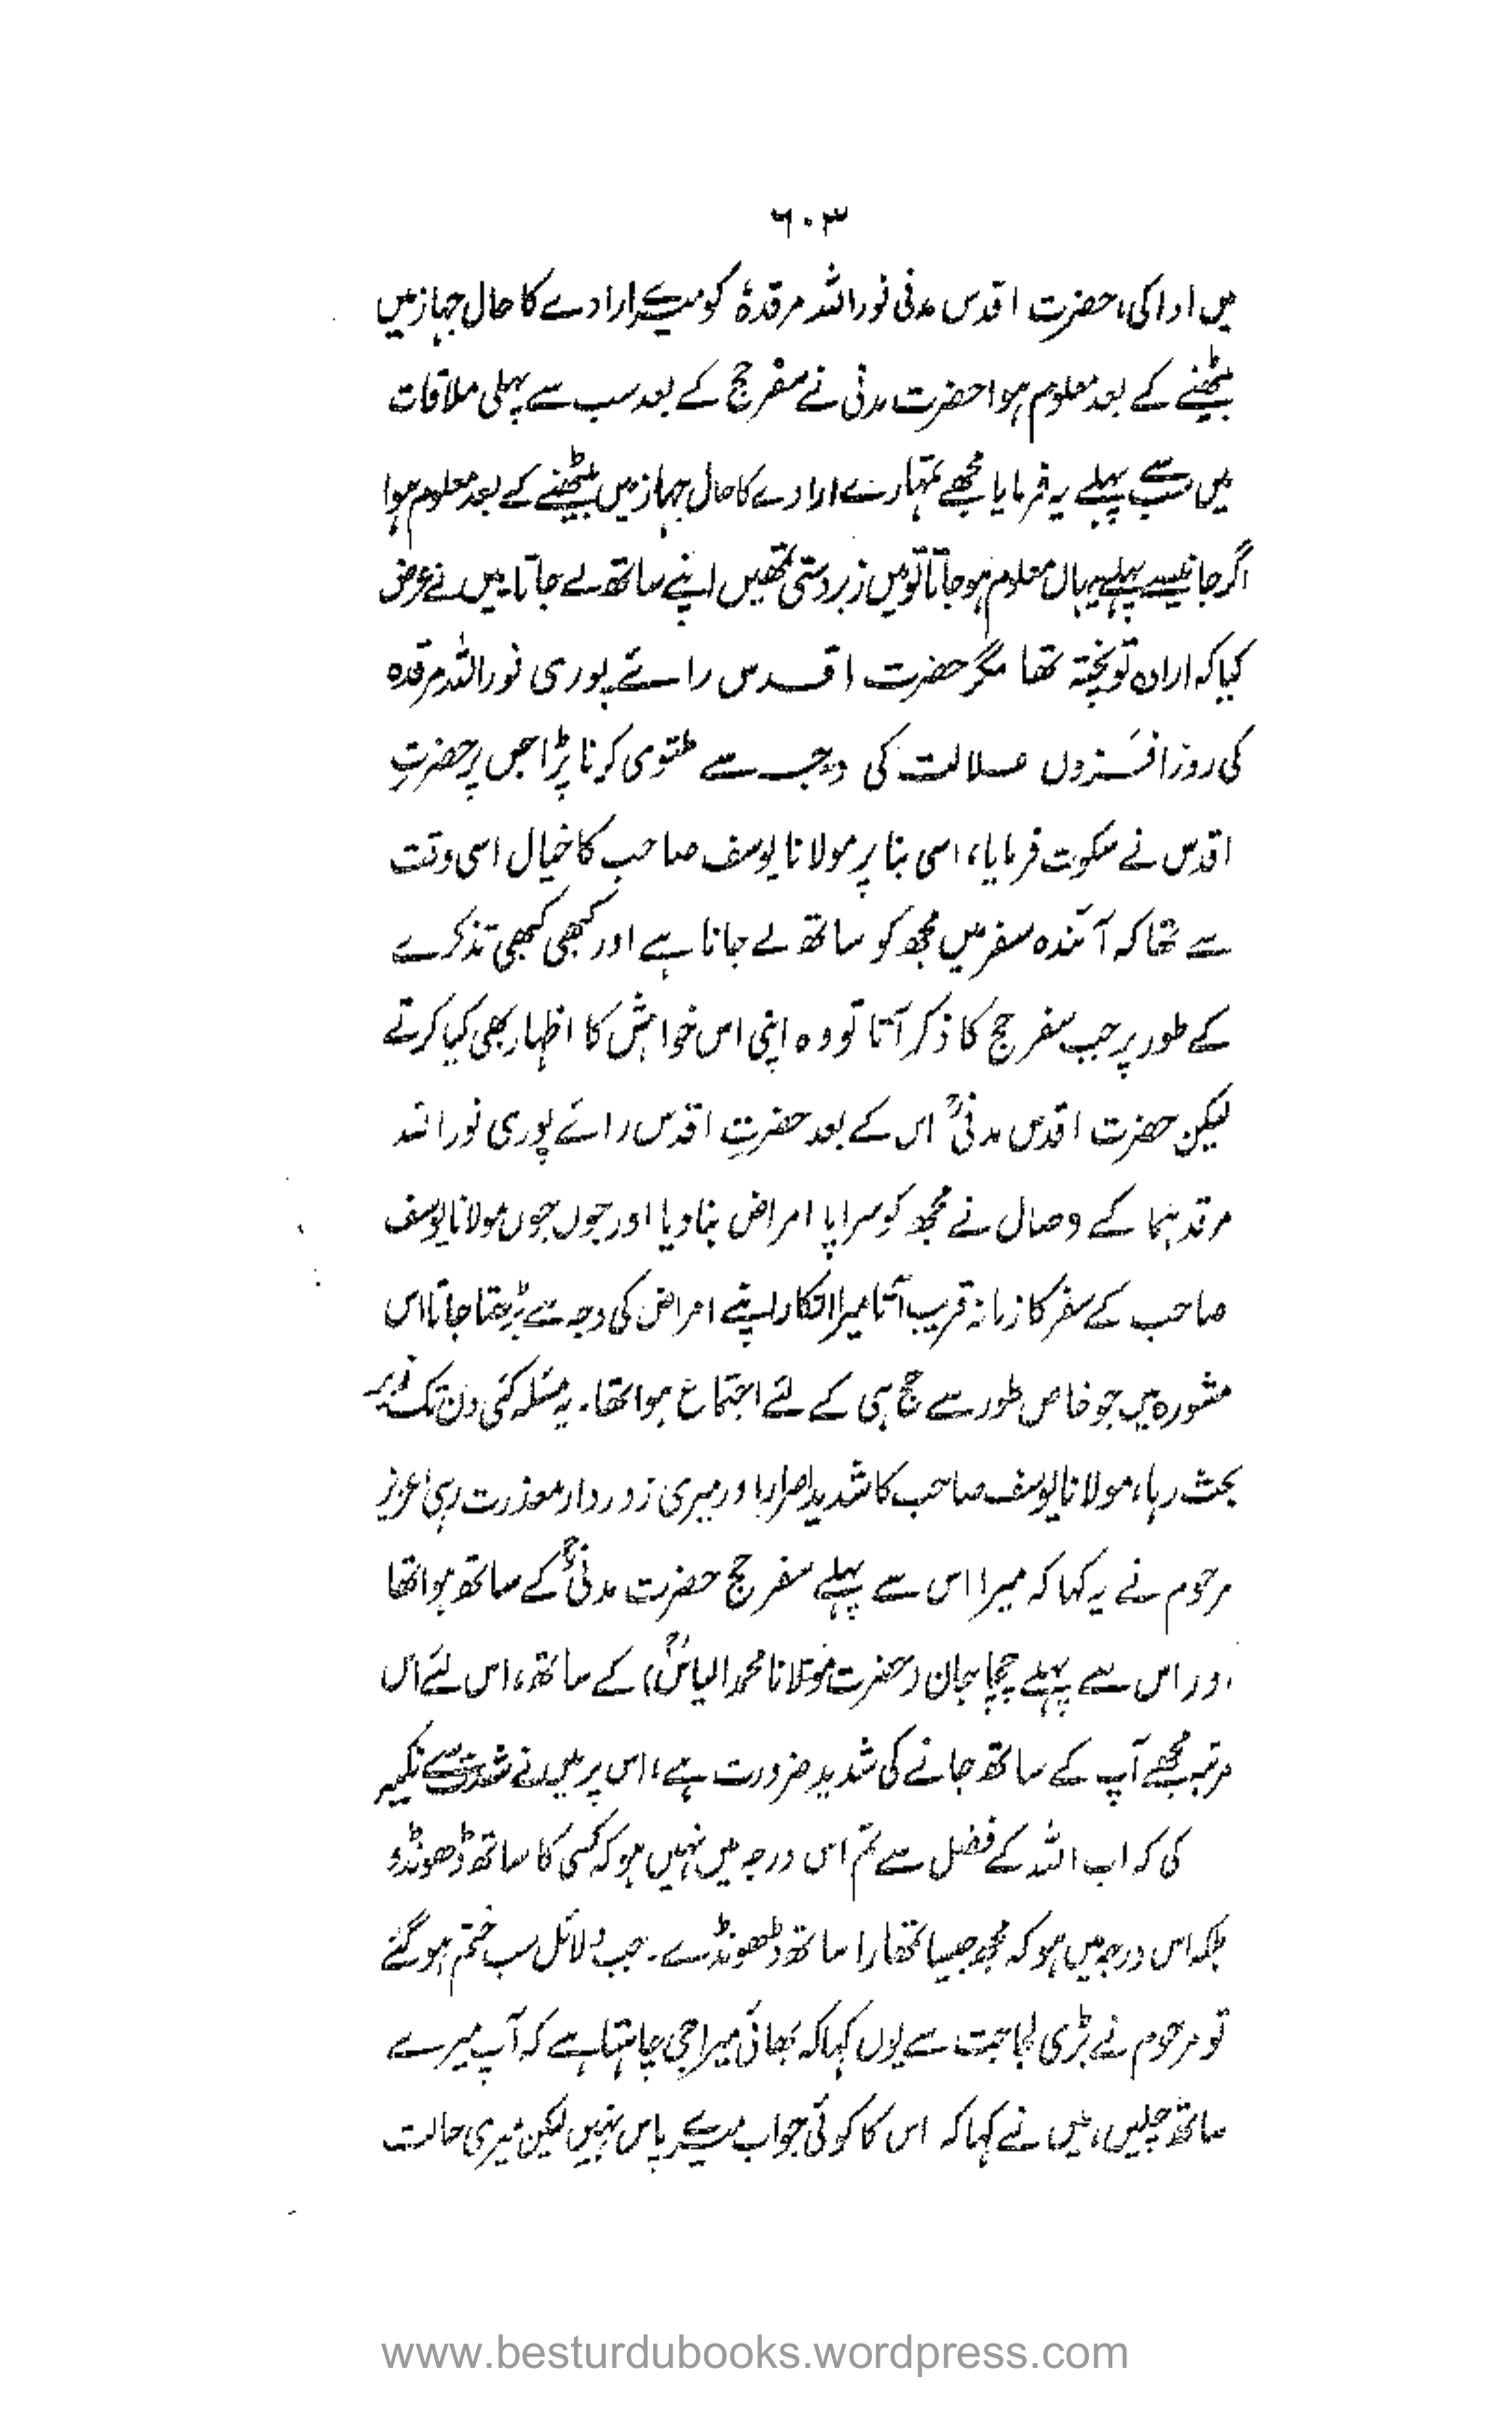 ٦٠٣
میں ادا کی، حضرت اقدس مدنی نور اللہ مرقدہٗ کو میرے ارادے کا حال جہاز میں
بیٹھنے کے بعد معلوم ہوا حضرت مدنی نے سفر حج کے بعد سب سے پہلی ملاقات
میں سب سے پہلے یہ فرمایا مجھے تمہارے ارادے کا حال جہاز میں بیٹھنے کے بعد معلوم ہوا
اگر جانے سے پہلے یہاں معلوم ہو جاتا تو میں زبردستی تمھیں اپنے ساتھ لے جاتا۔ میں نے عرض
کیا کہ ارادہ تو پختہ تھا مگر حضرت اقدس رائے پوری نور اللہ مرقدہ
کی روز افزوں علالت کی وجہ سے ملتوی کرنا پڑا جس پر حضرتِ
اقدس نے سکوت فرمایا، اسی بنا پر مولانا یوسف صاحب کا خیال اسی وقت
سے تھا کہ آئندہ سفر میں مجھ کو ساتھ لے جانا ہے اور کبھی کبھی تذکرے
کے طور پر جب سفر حج کا ذکر آتا تو وہ اپنی اس خواہش کا اظہار بھی کیا کرتے
لیکن حضرت اقدس مدنیؒ اس کے بعد حضرتِ اقدس رائے پوری نور اللہ
مرقدہما کے وصال نے مجھ کو سراپا امراض بنا دیا اور جوں جوں مولانا یوسف
صاحب کے سفر کا زمانہ قریب آتا میرا انکار اپنے امراض کی وجہ سے بڑھتا جاتا اس
مشورہ میں جو خاص طور سے حج ہی کے لئے اجتماع ہوا تھا۔ یہ مسئلہ کئی دن تک زیر
بحث رہا، مولانا یوسف صاحب کا شدید اصرار اور میری زوردار معذرت رہی عزیز
مرحوم نے یہ کہا کہ میرا اس سے پہلے سفر حج حضرت مدنیؒ کے ساتھ ہوا تھا
اور اس سے پہلے چچا جان (حضرت مولانا محمد الیاسؒ) کے ساتھ، اس لئے اس
مرتبہ مجھے آپ کے ساتھ جانے کی شدید ضرورت ہے، اس پر میں نے شدت سے نکیر
کی کہ اب اللہ کے فضل سے تم اس درجہ میں نہیں ہو کہ کسی کا ساتھ ڈھونڈو
بلکہ اس درجہ میں ہو کہ مجھ جیسا تمھارا ساتھ ڈھونڈے۔ جب دلائل سب ختم ہو گئے
تو مرحوم نے بڑی لجاجت سے یوں کہا کہ بھائی میرا جی چاہتا ہے کہ آپ میرے
ساتھ چلیں، میں نے کہا کہ اس کا کوئی جواب میرے پاس نہیں لیکن میری حالت
www.besturdubooks.wordpress.com